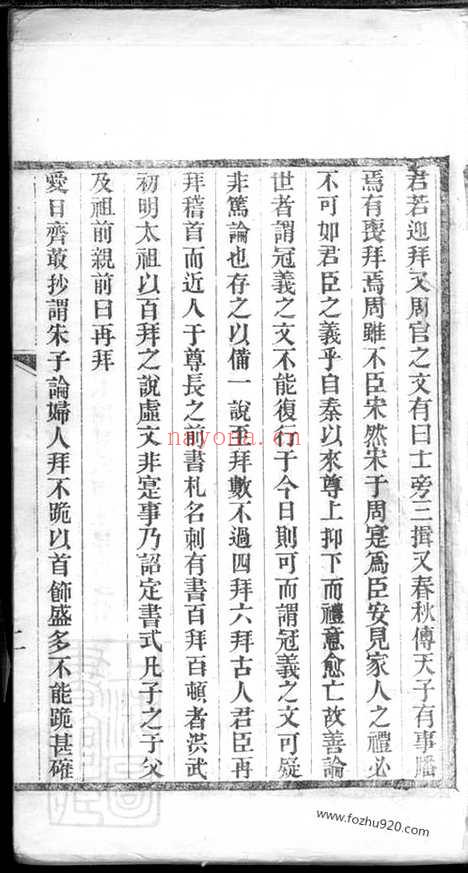 君若迎拜又周官之文有曰士旁三揖又春秋傳天子有事膰
焉有喪拜焉周雖不臣宋然宋于周寔爲臣安見家人之禮必
不可如君臣之義乎自秦以來尊上抑下而禮意愈亡故善論
世者謂冠義之文不能復行于今日則可而謂冠義之文可疑
非篤論也存之以備一說至拜數不過四拜六拜古人君臣再
拜稽首而近人于尊長之前書札名刺有書百拜百頓者洪武
初明太祖以百拜之說虛文非寔事乃詔定書式凡子之于父
及祖前親前曰再拜
愛日齊叢抄謂朱子論婦人拜不跪以首飾盛多不能跪甚確
二
nayona.cn
www.fozhu920.com